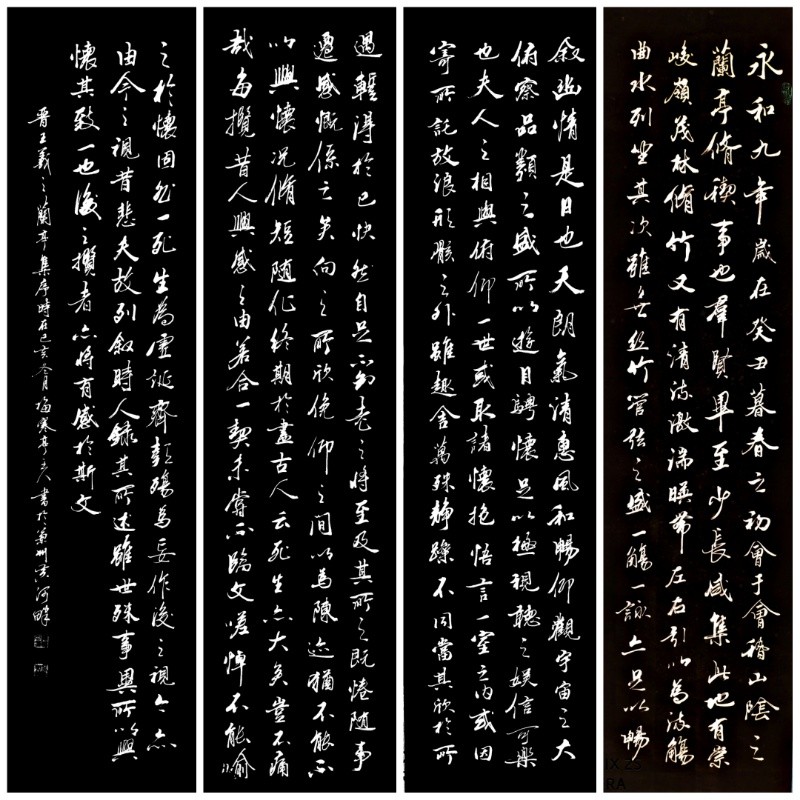 永和九年歲在癸丑暮春之初會于會稽山陰之
蘭亭脩禊事也羣賢畢至少長咸集此地有崇
峻嶺茂林脩竹又有清流激湍暎帶左右引以為流觴
曲水列坐其次雖無絲竹管弦之盛一觴一詠亦足以暢
敘幽情是日也天朗氣清惠風和暢仰觀宇宙之大
俯察品類之盛所以遊目騁懷足以極視聽之娛信可樂
也夫人之相與俯仰一世或取諸懷抱悟言一室之內或因
寄所託放浪形骸之外雖趣舍萬殊靜躁不同當其欣於所
遇輒得於己快然自足不知老之將至及其所之既惓隨事
遷感慨係之矣向之所欣俛仰之間以為陳迹猶不能不
以興懷況脩短隨化終期於盡古人云死生亦大矣豈不痛
哉每攬昔人興感之由若合一契未嘗不臨文嗟悼不能喻
之於懷固知一死生為虛誕齊彭殤為妄作後之視今亦
由今之視昔悲夫故列敘時人錄其所述雖世殊事異所以興
懷其致一也後之攬者亦將有感於斯文
晉王羲之蘭亭集序時在己亥冬月寒亭主人書於蘭州黃河畔